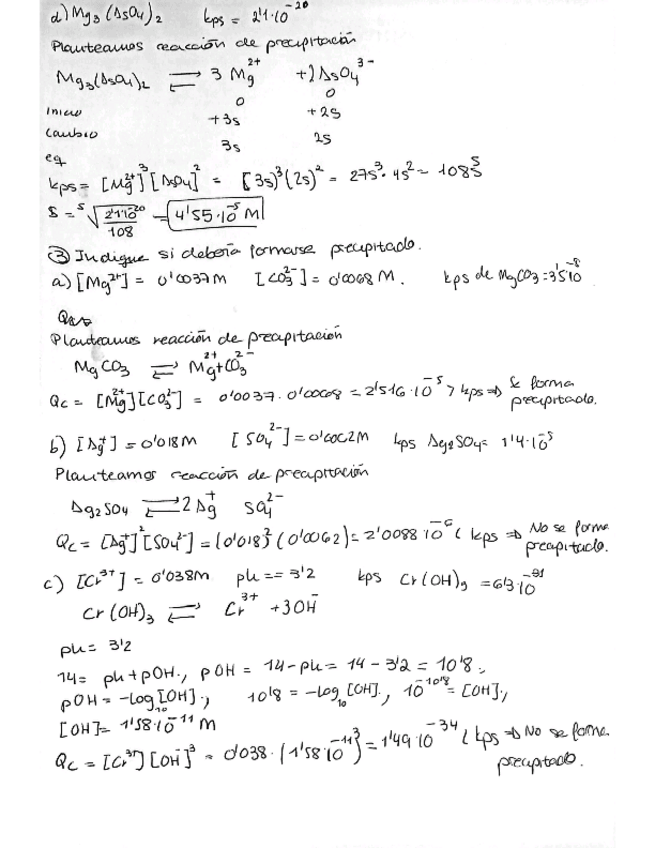 d) Mg3(AsO4)2 kps = 2'1·10^-20
Planteamos reacción de precipitación
Mg3(AsO4)2 ⇌ 3 Mg^2+ + 2AsO4^3-
Inicio 0 0
Cambio +3s +2s
eq 3s 2s
kps = [Mg^2+]^3 [AsO4]^2 = [3s)^3 (2s)^2 = 27s^3 · 4s^2 = 108s^5
S = ^5√(2'1·10^-20/108) = 4'55·10^-5 M
③ Indique si debería formarse precipitado.
a) [Mg^2+] = 0'0037M [CO3^2-] = 0'0068 M. kps de MgCO3 = 3'5·10^-8
Planteamos reacción de precipitación
MgCO3 ⇌ Mg^2+ + CO3^2-
Qc = [Mg^2+][CO3^2-] = 0'0037 · 0'0068 = 2'516·10^-5 > kps ⇒ Se forma
precipitado.
b) [Ag^+] = 0'018M [SO4^2-] = 0'0062M kps Ag2SO4 = 1'4·10^-5
Planteamos reacción de precipitación
Ag2SO4 ⇌ 2Ag^+ SO4^2-
Qc = [Ag^+]^2 [SO4^2-] = (0'018)^2 (0'0062) = 2'0088·10^-6 < kps ⇒ No se forma
precipitado.
c) [Cr^3+] = 0'038M pH == 3'2 kps Cr(OH)3 = 6'3·10^-31
Cr(OH)3 ⇌ Cr^3+ + 3OH^-
pH = 3'2
14 = pH + pOH; pOH = 14 - pH = 14 - 3'2 = 10'8;
pOH = -log10[OH]; 10'8 = -log10[OH]; 10^-10'8 = [OH];
[OH] = 1'58·10^-11 M
Qc = [Cr^3+][OH^-]^3 = 0'038·(1'58·10^-11)^3 = 1'49·10^-34 < kps ⇒ No se forma
precipitado.